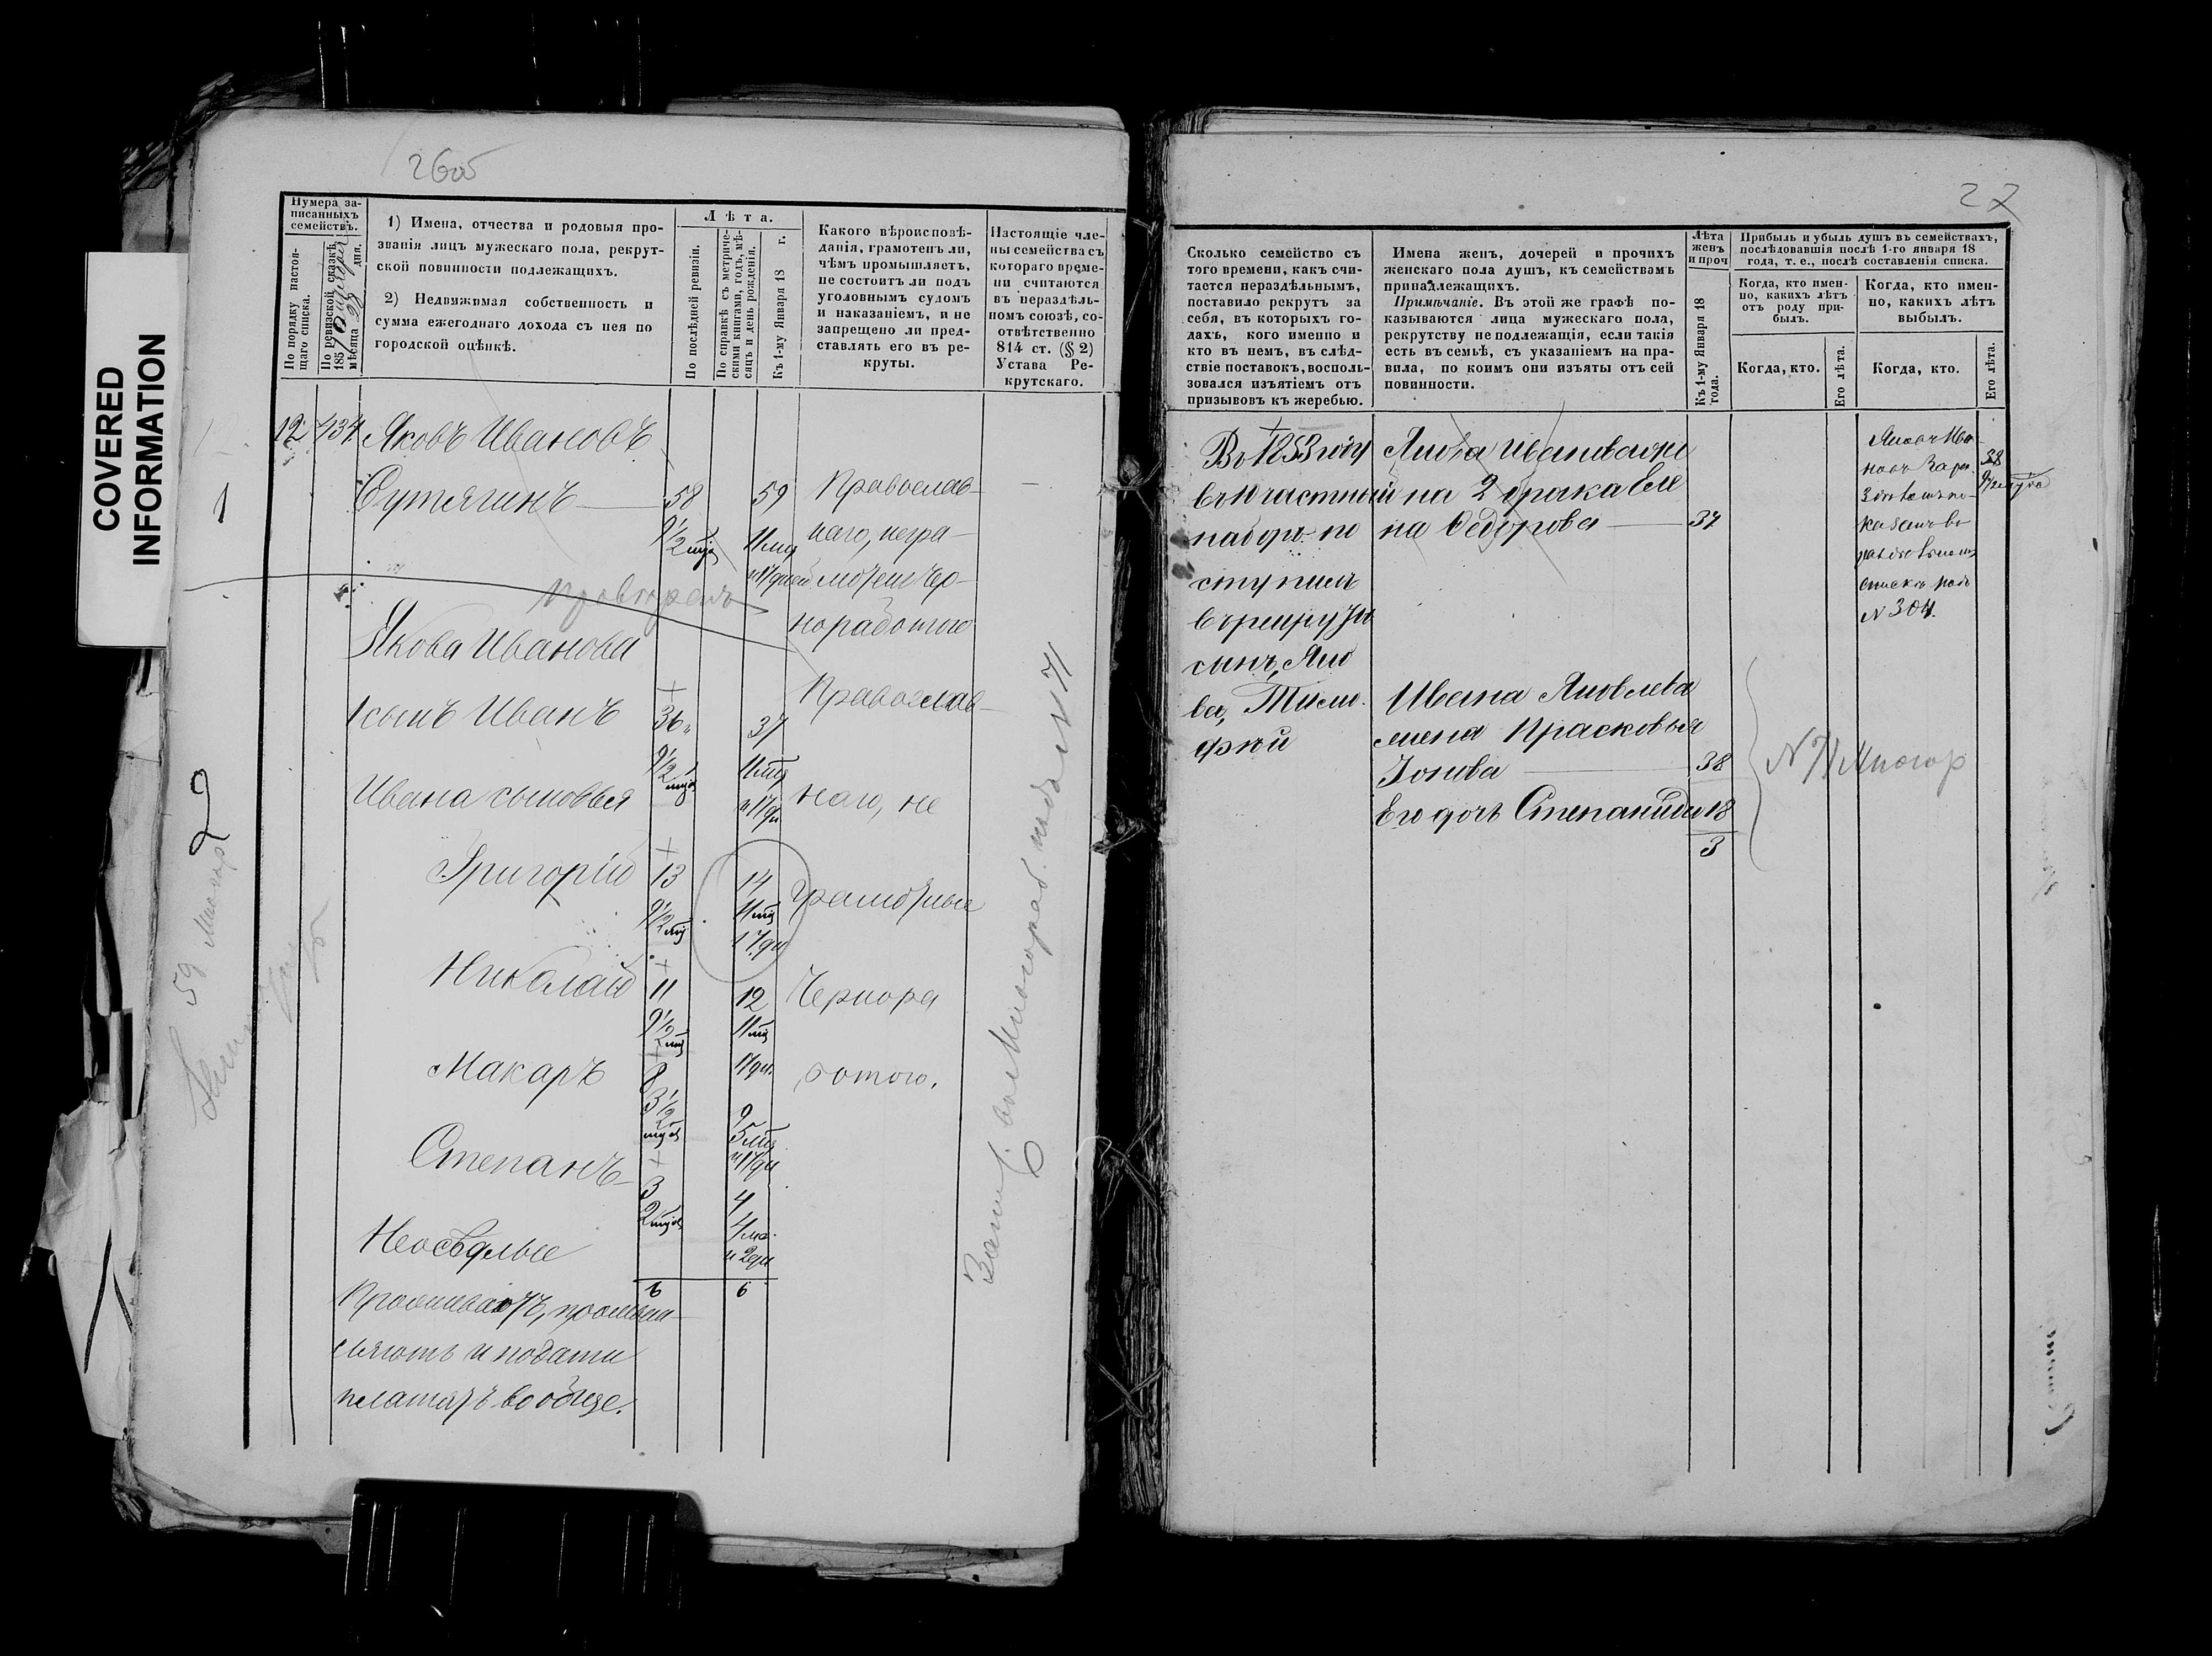 COVERED
INFORMATION
26об
Нумера за-
писанныхъ
семействъ.
По порядку настоя-
щаго списка.
По ревизской сказкѣ
185
мѣсяца 28 дня.
1) Имена, отчества и родовыя про-
званія лицъ мужескаго пола, рекрут-
ской повинности подлежащихъ.
2) Недвижимая собственность и
сумма ежегоднаго дохода съ нея по
городской оцѣнкѣ.
Лѣта.
По послѣдней ревизіи.
По справкѣ съ метриче-
скими книгами, годъ, мѣ-
сяцъ и день рожденія.
Къ 1-му Января 18 г.
Какого вѣроисповѣ-
данія, грамотенъ ли,
чѣмъ промышляетъ,
не состоитъ ли подъ
уголовнымъ судомъ
и наказаніемъ, и не
запрещено ли пред-
ставлять его въ ре-
круты.
Настоящіе чле-
ны семейства съ
котораго време-
ни считаются
въ нераздѣль-
номъ союзѣ, со-
отвѣтственно
814 ст. (§ 2)
Устава Ре-
крутскаго.
12 434 Яковъ Ивановъ
1
Сутягинъ 58 59 Православ-
9½ мца 11 мц наго, негра-
и 17 дней мотенъ Чер-
ноработою
Якова Иванова
1 сынъ Иванъ 36 37 Православ-
9½ мца 11 мц
и 17 дн
Ивана сыновья наго, не
2
Григорій 13 14 грамотные
9½ мц 11 мц
17 дн
Николай 11 12 Чернора
9½ мц 11 мц
17 дн.
Макаръ 8 ботою.
3½ мца 9
5 мц
и 17 дн
Степанъ 3 4
2 мца 4 мц.
и 2 дн
Неосѣдлые
6 6
Проживаютъ, промыш-
ляютъ и подати
платятъ вообще.
59 Мисогор
27
Сколько семейство съ
того времени, какъ счи-
тается нераздѣльнымъ,
поставило рекрутъ за
себя, въ которыхъ го-
дахъ, кого именно и
кто въ немъ, въ слѣд-
ствіе поставокъ, восполь-
зовался изъятіемъ отъ
призывовъ къ жеребью.
Имена женъ, дочерей и прочихъ
женскаго пола душъ, къ семействамъ
принадлежащихъ.
Примѣчаніе. Въ этой же графѣ по-
казываются лица мужескаго пола,
рекрутству не подлежащія, если такія
есть въ семьѣ, съ указаніемъ на пра-
вила, по коимъ они изъяты отъ сей
повинности.
Лѣта
женъ
и проч
Къ 1-му Января 18
года.
Прибыль и убыль душъ въ семействахъ,
послѣдовавшія послѣ 1-го января 18
года, т. е., послѣ составленія списка.
Когда, кто имен-
но, какихъ лѣтъ
отъ роду при-
былъ.
Когда, кто имен-
но, какихъ лѣтъ
выбылъ.
Когда, кто.
Его лѣта.
Когда, кто.
Его лѣта.
Въ 1853 году
въ 10 частный
наборъ по
ступилъ
въ рекруты
сынъ Яко
ва, Тимо
фей
Якова Иванова же
на 2 брака Еле
на Федорова 37
Ивана Яковлева
жена Прасковья
Іонова 38
Его дочь Степанида 18
3
N 71 Мисогор
Яковъ Ива
новъ
показанъ въ
спискѣ подъ
N 304.
38
9½